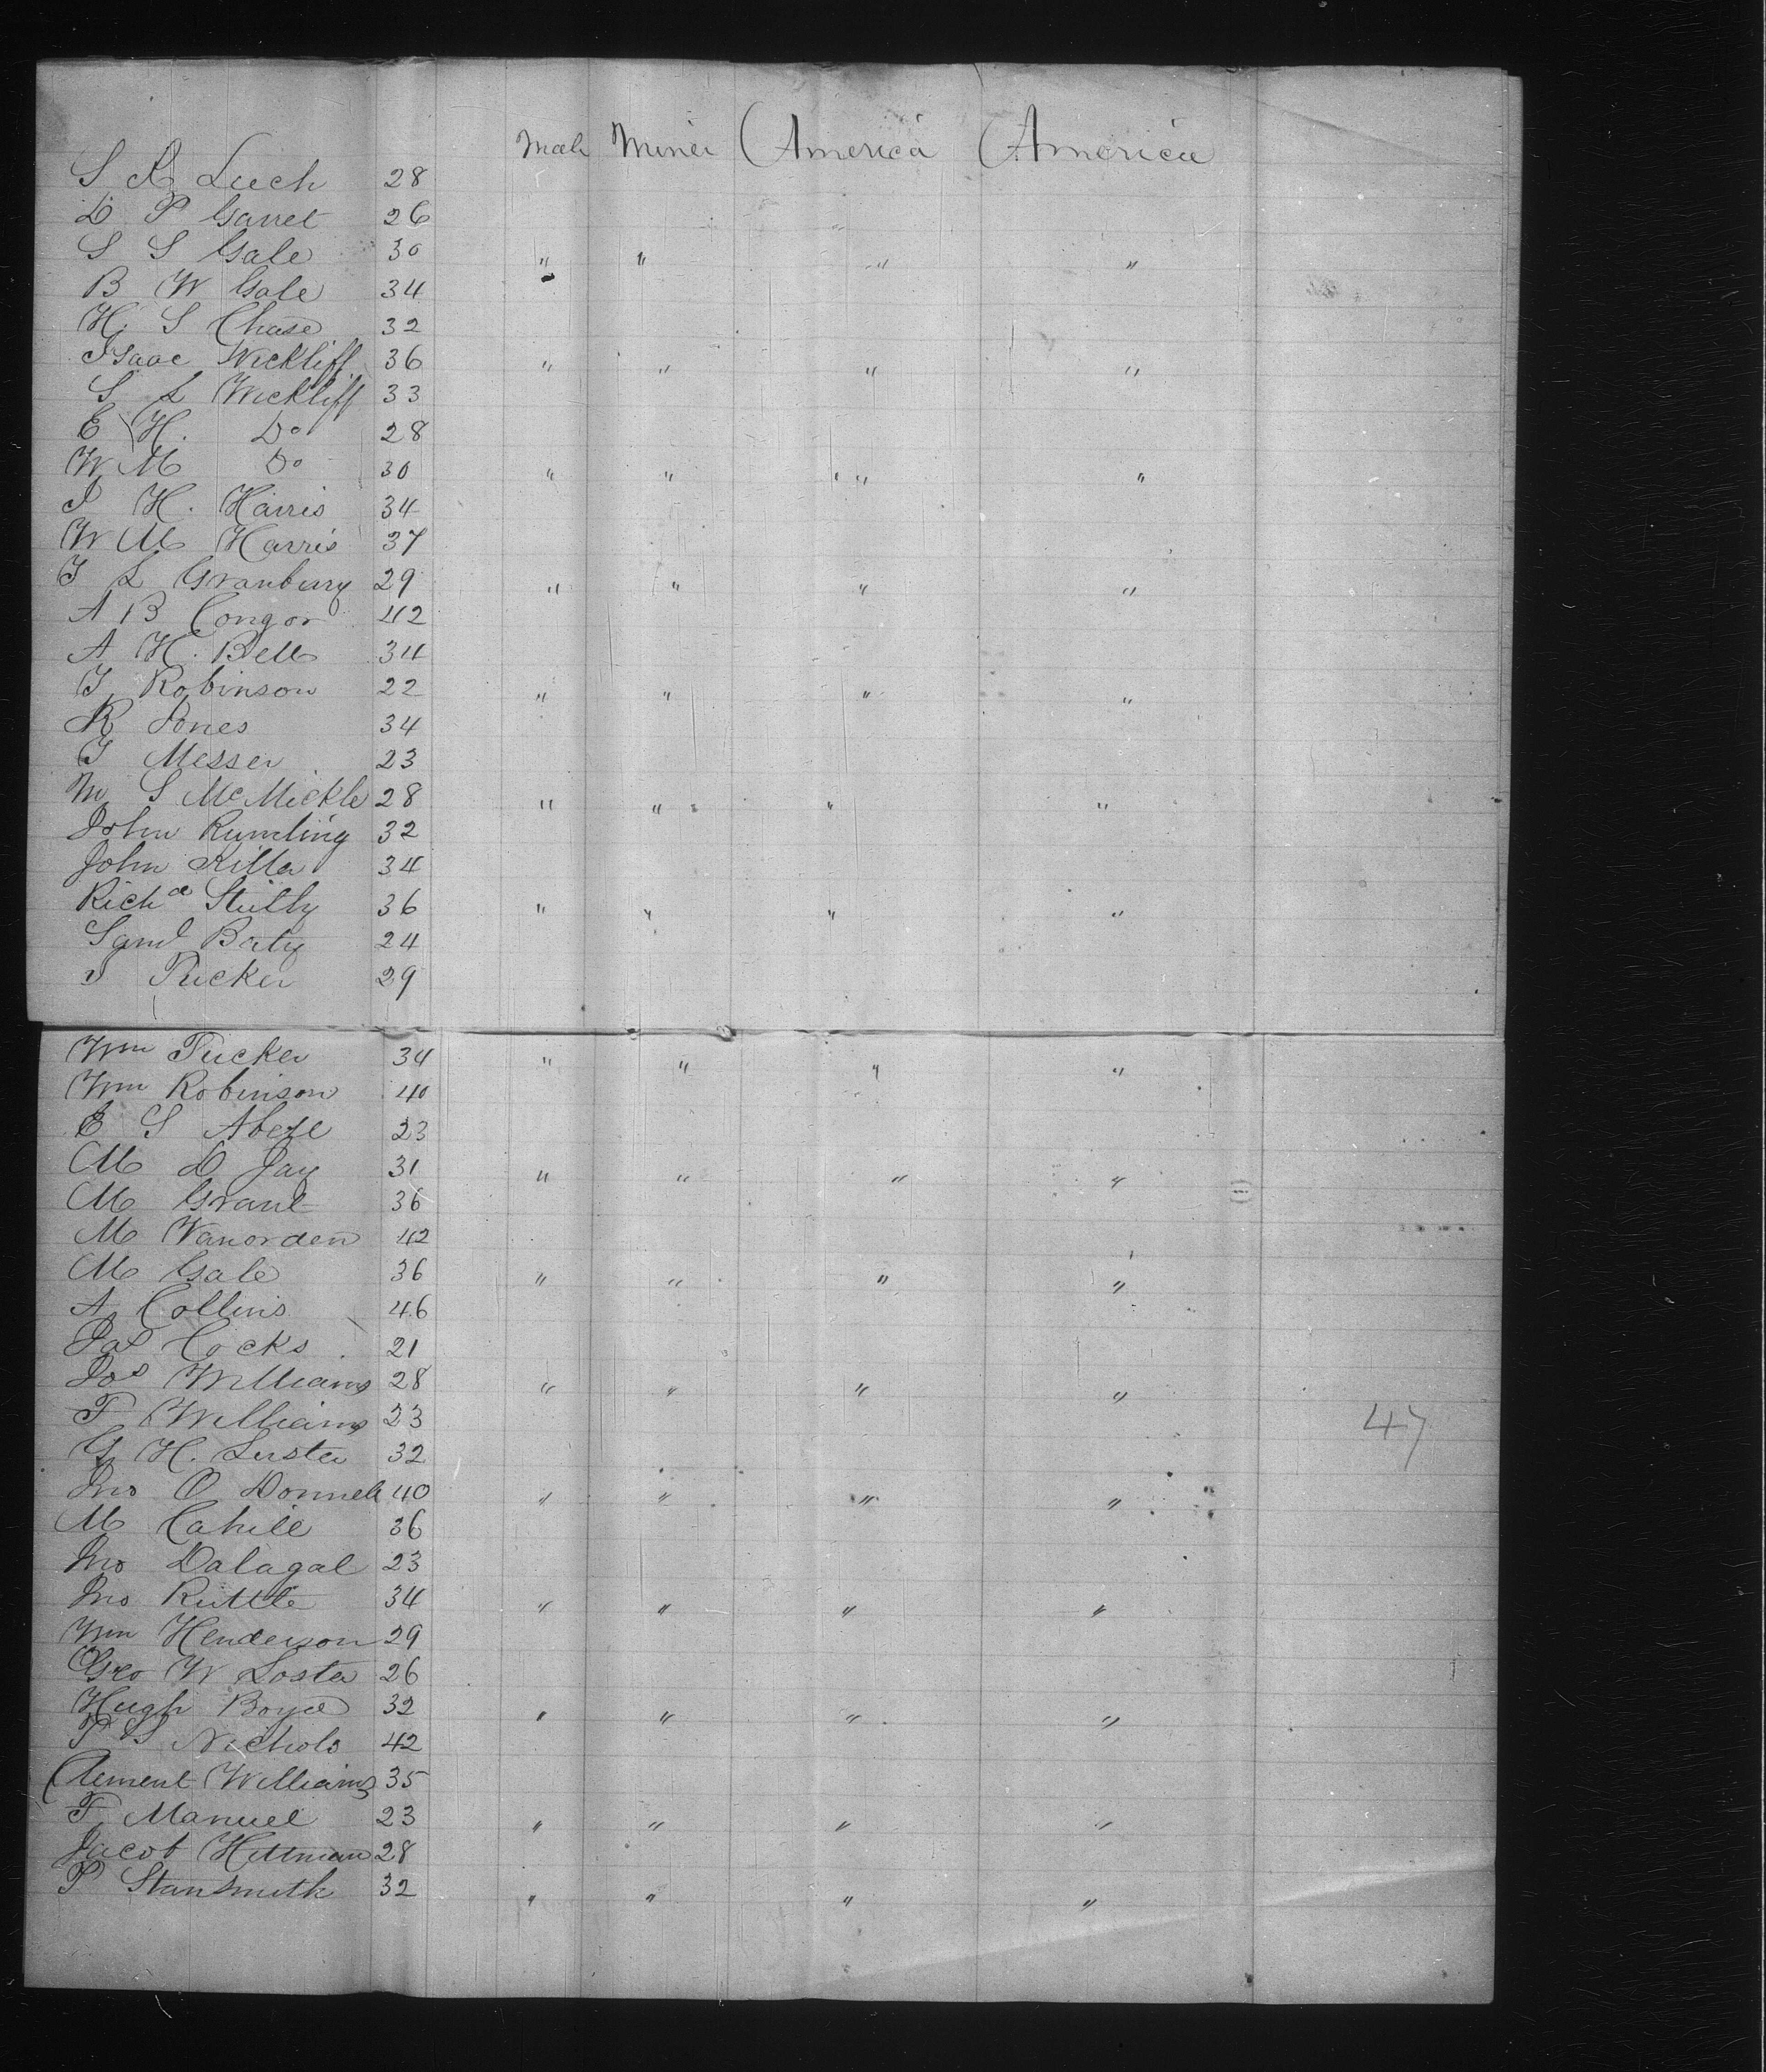 Male Miner America America
S R Luch 28
D P Garret 26
S S Gale 30 " " " "
B W Gale 34
H. S Chase 32
Isaac Wickliff 36 " " " "
S L Wickliff 33
E H. Do 28
W M Do 30 " " " "
J H. Harris 34
W M Harris 37
T L Granbury 29 " " " "
A B Congor 42
A H. Bell 34
T Robinson 22 " " " "
R Jones 34
T Messer 23
M S McMickle 28 " " " "
John Rumling 32
John Killa 34
Richd Stilly 36 " " " "
Saml Baty 24
J Tucker 29
Wm Tucker 34 " " " "
Wm Robinson 40
E S Abell 23
M D Jay 31 " " " "
M Grant 36
M Vanorden 42
M Gale 36 " " " "
A Collins 46
Jas Cocks 21
Jos Williams 28 " " " "
T Williams 23
G H. Luster 32
47
Jno O Donnell 40 " " " "
M Cahill 36
Jno Dalagal 23
Jno Ruttle 34 " " " "
Wm Henderson 29
Geo W Loster 26
Hugh Boyd 32 " " " "
P S Nichols 42
Clement Williams 35
F Manuel 23 " " " "
Jacob Hittman 28
P Stansmith 32 " " " "